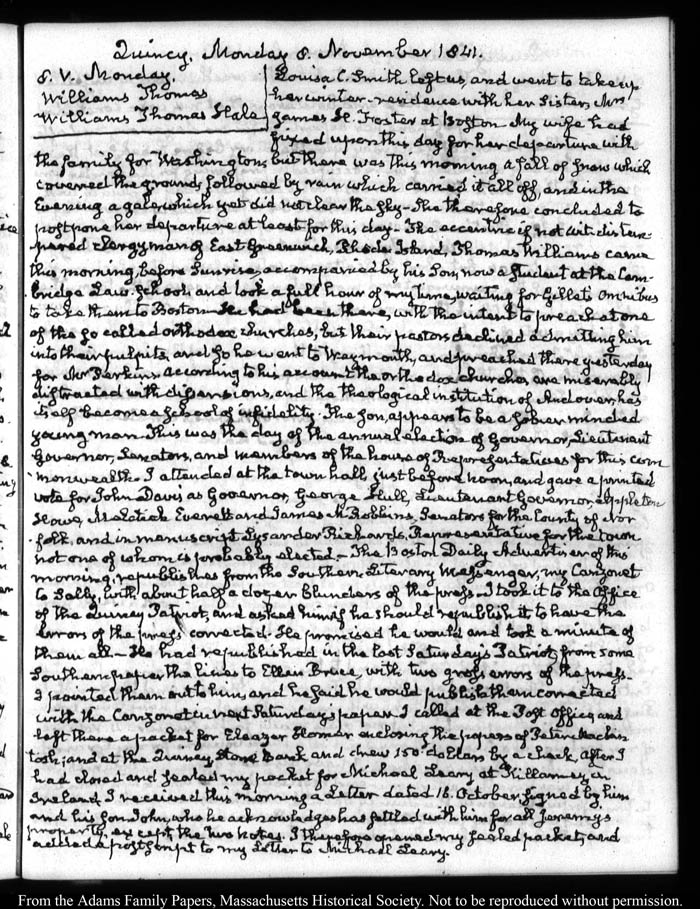 Quincy, Monday 8. November 1841.
8. V. Monday.
Williams Thomas
Williams Thomas Hale
Louisa C. Smith left us, and went to take up
her winter-residence with her Sister, Mrs
James H. Foster at Boston My wife had
fixed upon this day for her departure with
the family for Washington, but there was this morning a fall of snow which
covered the ground, followed by rain which carried it all off, and in the
Evening a gale which yet did not clear the sky— She therefore concluded to
postpone her departure at least for this day— The eccentric if not wit-distem-
pered clergyman of East Greenwich, Rhode Island, Thomas Williams came
this morning, before Sunrise, accompanied by his Son, now a student at the Cam-
bridge Law School, and took a full hour of my time, waiting for Gillett's Omnibus
to take them to Boston— He had been there, with the intent to preach at one
of the so called orthodox churches, but their pastors declined admitting him
into their pulpits, and so he went to Weymouth, and preached there yesterday
for Mr Perkins according to his account the orthodox churches are miserably
distracted with dissensions, and the theological institution of Andover, has
itself become a school of infidelity. The Son, appears to be a sober minded
young man. This was the day of the annual election of Governor, Lieutenant
Governor, Senators, and members of the house of Representatives for this com
monwealth. I attended at the town hall, just before noon, and gave a printed
vote for John Davis as Governor, George Hull, Lieutenant Governor, Appleton
Howe, Metick Everett and James M. Robbins, Senators for the County of Nor
folk, and in manuscript Lysander Richards, Representative for the town
not one of whom is probably elected.— The Boston Daily Advertiser of this
morning, republishes from the Southern Literary Messenger, my Canzonet
to Sally, with about half a dozen blunders of the press— I took it to the Office
of the Quincy Patriot, and asked him if he should republish it to have the
errors of the press corrected. He promised he would and took a minute of
them all— He had republished in the last Saturday's Patriot, from some
Southern paper the lines to Ellen Bruce, with two gross errors of the press—
I pointed them out to him, and he said he would publish them corrected
with the Canzonet in next Saturday's paper. I called at the Post Office, and
left there a packet for Eleazar Homer enclosing the papers of Peter Mackin
tosh; and at the Quincy Stone Bank and drew 150 dollars by a check, After I
had closed and sealed my packet for Michael Leary at Killarney, in
Ireland I received this morning a Letter dated 18. October, signed by him
and his Son John, who he acknowledges has settled with him for all Jeremy's
property, except the two notes. I therefore opened my sealed packet, and
added a postscript to my Letter to Michael Leary.
From the Adams Family Papers, Massachusetts Historical Society. Not to be reproduced without permission.